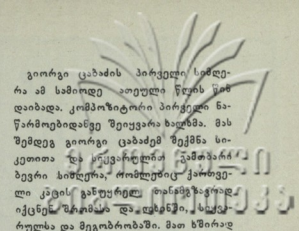 გიორგი ცაბაძის პირველი სიმღე-
რა ამ სამიოდე ათეული წლის წინ
დაიბადა. კომპოზიტორი პირველი ნა-
წარმოებიდანვე შეიყვარა ხალხმა. მას
შემდეგ გიორგი ცაბაძემ შექმნა სი-
კეთითა და სიყვარულით გამთბარი
ბევრი სიმღერა, რომლებიც ქართვე-
ლი კაცის განუყრელ თანამგზავრად
იქცნენ შრომასა და ლხინში, სიყვა-
რულსა და მეგობრობაში. მათ ხშირად
ეროვნული
ბიბლიოთეკა